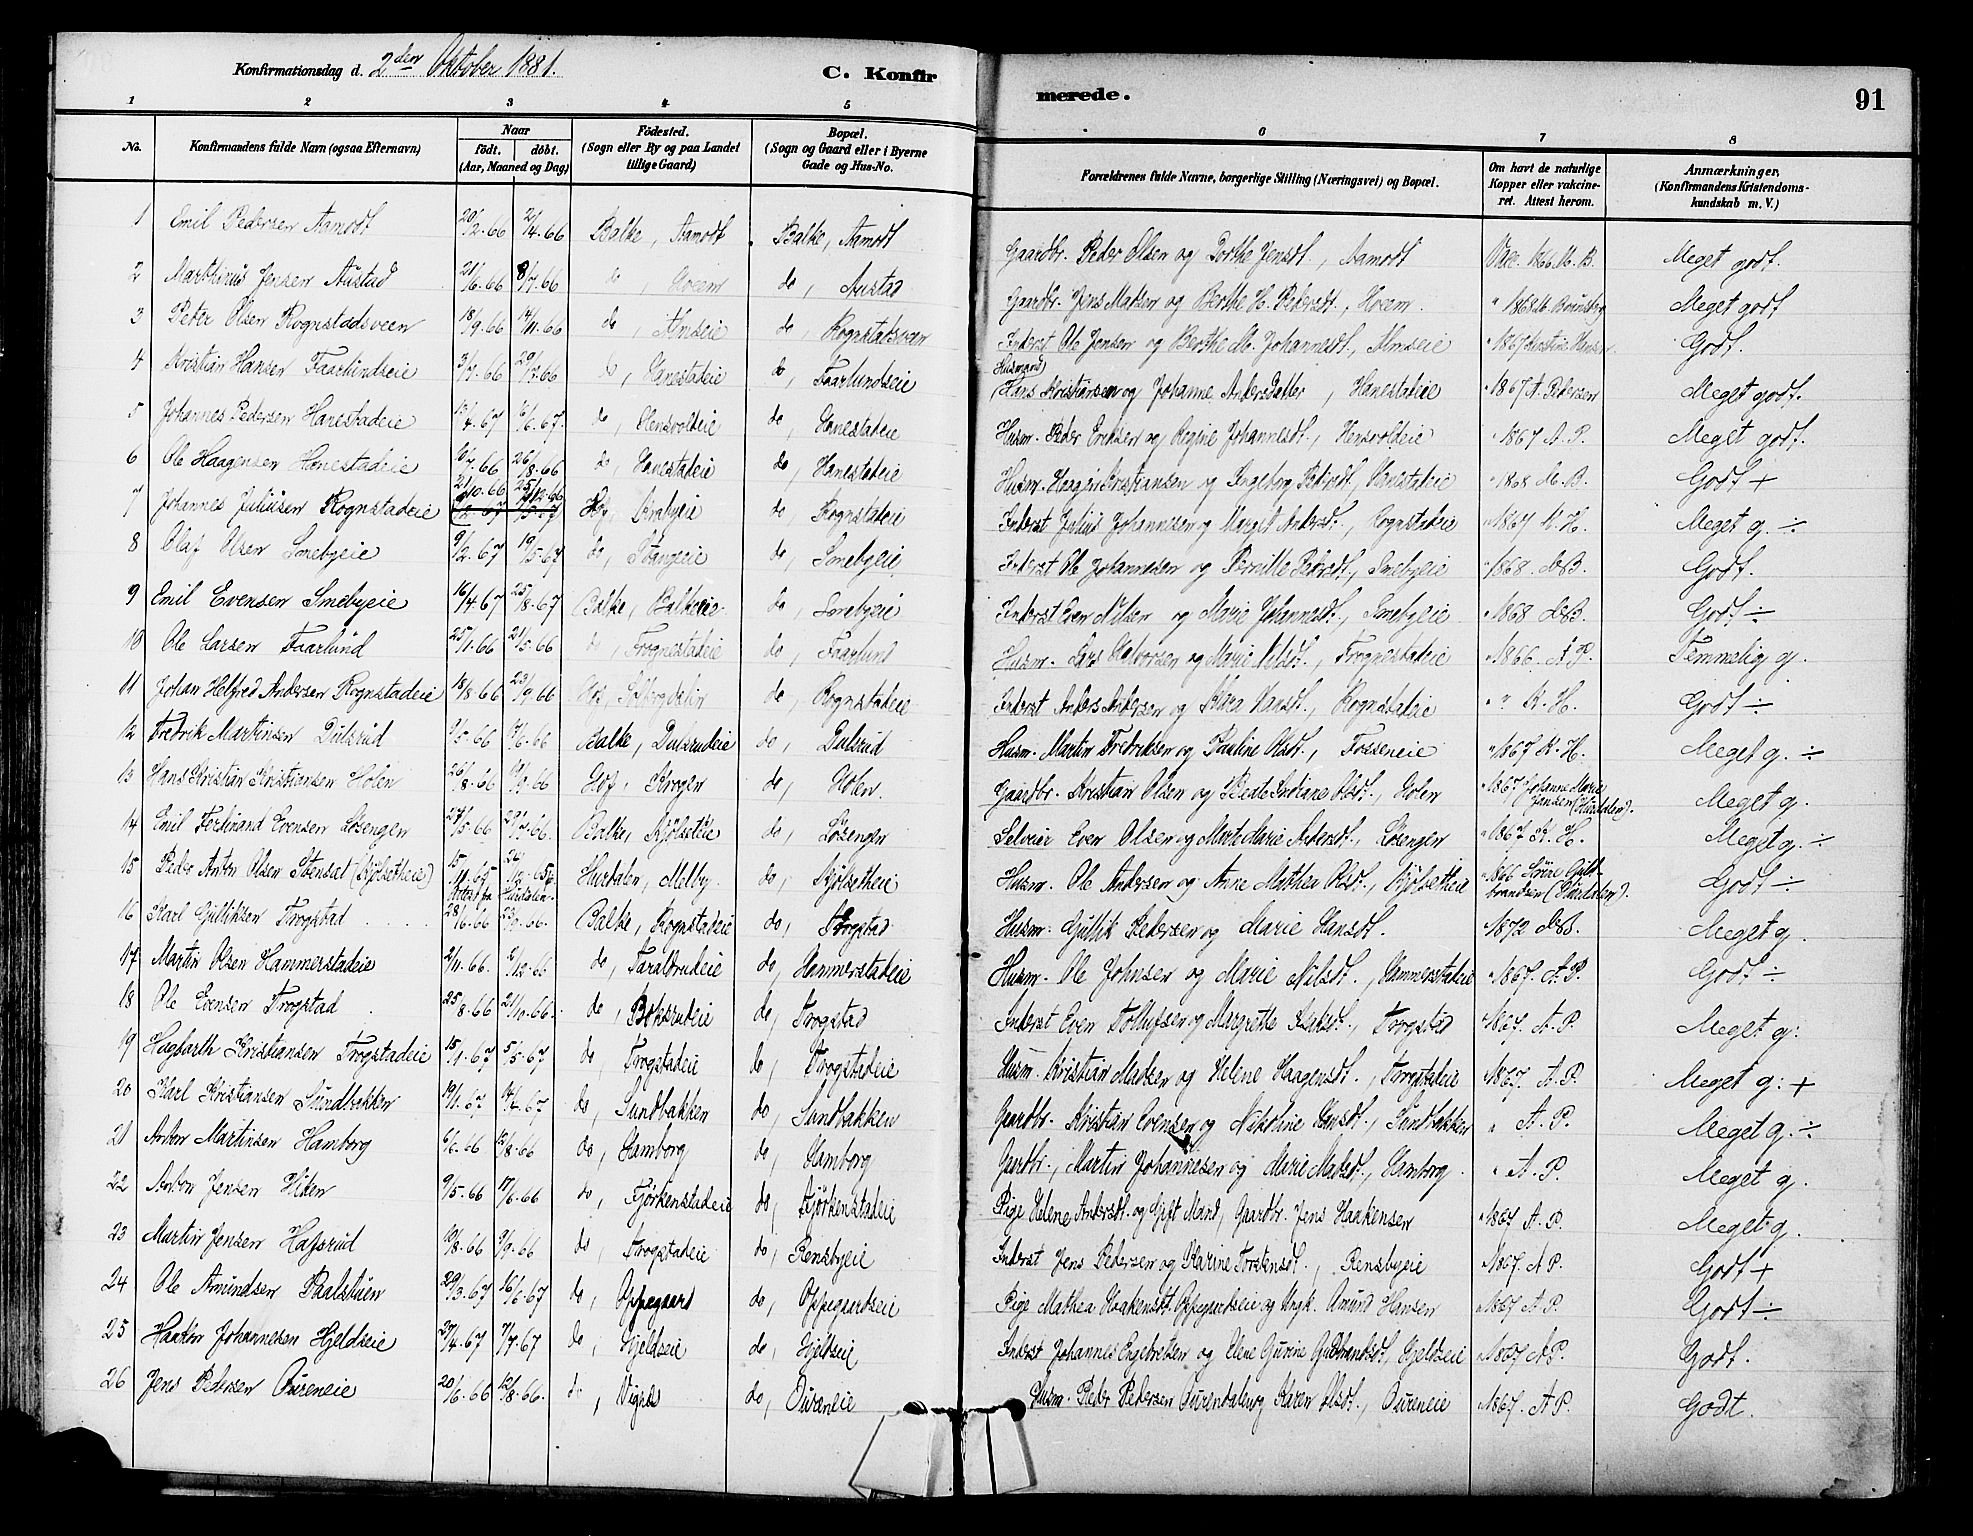 Konfirmationsdag d. 2den Oktober 1881.
C. Konfirmerede.
91
1 2 3 4 5 6 7 8
No. Konfirmandens fulde Navn (ogsaa Efternavn) Naar født. døbt. (Aar, Maaned og Dag) Födested. (Sogn eller By og paa Landet tillige Gaard) Bopæl. (Sogn og Gaard eller i Byerne Gade og Hus-No. Forældrenes fulde Navne, borgerlige Stilling (Næringsvei) og Bopæl. Om havt de naturlige Kopper eller vakcineret. Attest herom. Anmærkninger. (Konfirmandens Kristendomskundskab m. V.)
1 Emil Pedersen Aamodt 20/2.66 2/4.66 Balke, Aamodt Balke, Aamodt Gaardbr. Peder Olsen og Dorthe Jensdt., Aamodt Vacc. 1866. M. B. Meget godt.
2 Marthinus Jensen Austad 21/6.66 8/7.66 do, Hoem do, Austad Gaardbr. Jens Madsen og Berthe H. Pedersdt., Hoem " 1868 Meget godt
3 Peter Olsen Rognstadsveen 18/9.66 14/11.66 do, Almseie do, Rognstadsveen Inderst Ole Jensen og Berthe M. Johannesdt., Almseie " 1867 Kerstine Hansen Godt.
4 Kristian Hansen Faarlundseie 3/7.66 29/7.66 do, Hanestadeie do, Faarlundseie Husmand Hans Kristiansen og Johanne Andersdatter, Hanestadeie " 1867 A. Pedersen Meget godt.
5 Johannes Pedersen Hanestadeie 13/4.67 6/6.67. do, Hensvoldeie do, Hanestadeie Husm. Peder Eriksen og Regine Johannesdt., Hensvoldeie " 1867 A. P. Meget godt.
6 Ole Haagensen Hanestadeie 6/7.66 26/8.66 do, Hanestadeie do, Hanestadeie Husm. Haagen Kristiansen og Ingeborg Pedersdt., Hanestadeie " 1868 M. B. Godt +
7 Johannes Juliusen Rognstadeie 21/10.66 25/12.66 Hof, Kirabyeie do, Rognstadeie Inderst Julius Johannesen og Margit Andersdt., Rognstadeie " 1867 K. H. Meget g. ÷
8 Olaf Olsen Smebyeie 9/2.67 19/5.67 do, Stangeie do, Smebyeie. Inderst Ole Johannesen og Pernille Pedersdt., Smebyeie " 1868. Godt.
9 Emil Evensen Smebyeie 16/4.67 25/8.67 Balke, Balkeeie do, Smebyeie Inderst Even Nilsen og Marie Johannesdt., Smebyeie " 1868 Godt ÷
10 Ole Larsen Faarlund 25/1.66 21/5.66 do, Frognestadeie do, Faarlund Husm. Lars Halvorsen og Marie Nilsdt., Frognestadeie " 1866 A P. Temmelig g.
11 Johan Helfred Andersen Rognstadeie 18/8 66 23/9 66 Hof, do, Rognstadeie Inderst Anders Andersen og Klara Hansdt., Rognstadeie " " K. H. Godt ÷
12 Fredrik Martinsen Dulsrud 9/5.66 Balke, Dulsrudeie do, Dulsrud Husm. Martin Fredriksen og Pauline Olsdt., Fosseneie " 1867 K. H. Meget g. ÷
13 Hans Kristian Kristiansen Holen 26/8.66 9/9.66 Hof, Krogen do, Holen. Gaardbr. Kristian Olsen og Beate Indiane Olsdt., Holen " 1867 Johanne Marie Jansen (Hurdalen). Meget g.
14 Emil Ferdinand Evensen Løsengen 27/5.66 29/7.66. Balke, Kjølsetheie do, Løsengen Selveier Even Olsen og Marte Marie Andersdt., Løsengen " 1867 K. H. Meget g. ÷
15 Peder Anton Olsen Stensæt (Kjølsetheie) 15/11.65 Attest fra Hurdalen. Hurdalen, Melby do, Kjølsetheie Husm. Ole Andersen og Anne Mathea Olsdt., Kjølsetheie " 1866 Sørine Gulbrandsen (Hurdalen). Godt ÷
16 Karl Gulliksen Frogstad 28/6.66 23/9.66. Balke, Rognstadeie do, Frogstad Husm. Gullik Pedersen og Marie Hansdt. " 1872 Meget g.
17 Martin Olsen Hammerstadeie 2/11.66. 2/12.66 do, Faraldrudeie do, Hammerstadeie Husm. Ole Johnsen og Marie Nilsdt., Hammerstadeie " 1867. A. P. Godt ÷
18 Ole Evensen Frogstad 25/8.66 21/10.66. do, Boksrudeie do, Frogstad Inderst Even Tollufsen og Margrethe Isaksdt., Frogstad " 1867. A. P. Meget g.
19 Hagbarth Kristiansen Frogstadeie 15/1.67 5/5.67 do, Frogstadeie do, Frogstadeie Husm. Kristian Madsen og Helene Haagensdt., Frogstadeie " 1867. A. P. Meget g. +
20 Karl Kristiansen Sundbakken 19/1.67 14/4.67 do, Sundbakken do, Sundbakken Gaardbr. Kristian Evensen og Nikoline Hansdt., Sundbakken " A. P. Meget g. ÷
21 Anton Martinsen Hamborg 6/6.66 15/8.66 do, Hamborg do, Hamborg Gardbr., Martin Johannesen og Marie Madsdt., Hamborg. " A. P. Meget g.
22 Anton Jensen Viken 9/5.66 17/6.66 do, Fjørkenstadeie do, Fjørkenstadeie Pige Helene Andersdt. og Gift Mand, Gaardbr. Jens Haakensen " 1867 A. P. Meget g.
23 Martin Jensen Hafsrud 10/8.66 9/9.66 do, Frogstadeie do, Rensbyeie Inderst Jens Pedersen og Karine Torstensdt., Rensbyeie " 1867. A P. Godt +
24 Ole Amundsen Paalstuen 29/3.67 16/6.67 do, Oppegaard do, Oppegaardseie Pige Mathea Haakensdt. Oppegardseie og Ungk. Amund Hansen " 1867 A P. Godt ÷
25 Haakon Johannesen Hjeldseie 27/4.67 7/7.67 do, Gjeldseie do, Gjeldseie Inderst Johannes Engebretsen og Elene Gurine Gulbrandsdt., Gjeldseie " 1867 A P. Godt.
26 Jens Pedersen Oureneie 20/6.66 12/8.66. do, Vignes do, Oureneie Husm. Peder Pedersen og Karen Olsdt., Oureneie " 1867. A P. Godt.